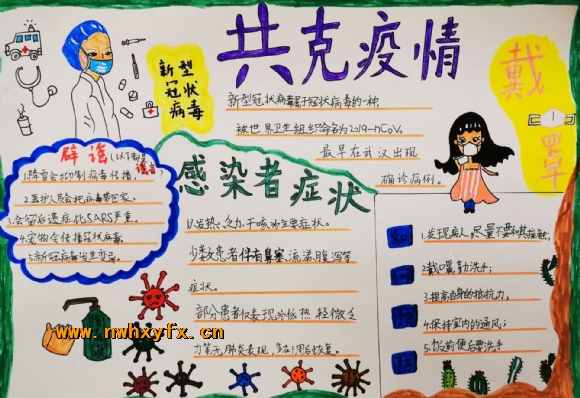 共克疫情
新型
冠状
病毒
新型冠状病毒属于冠状病毒的一种,
被世界卫生组织命名为2019-nCoV。
最早在武汉出现
确诊病例。
戴
罩
辟谣(以下都是
谣言)
1.降雪会抑制病毒传播
2.医护人员会把病毒带回家。
3.会留后遗症比SARS严重。
4.宠物会传播冠状病毒
感染者症状
以发热、乏力、干咳为主要症状。
少数患者伴有鼻塞、流涕、腹泻等
症状。
部分患者仅表现为低热、轻微乏
力等,无肺炎表现,多在1周后恢复。
1.发现病人,尽量不要和其接触;
2.戴口罩,勤洗手;
3.提高自身的抵抗力。
4.保持室内的通风;
5.饭前便后要洗手
www.nwhxyfx.cn